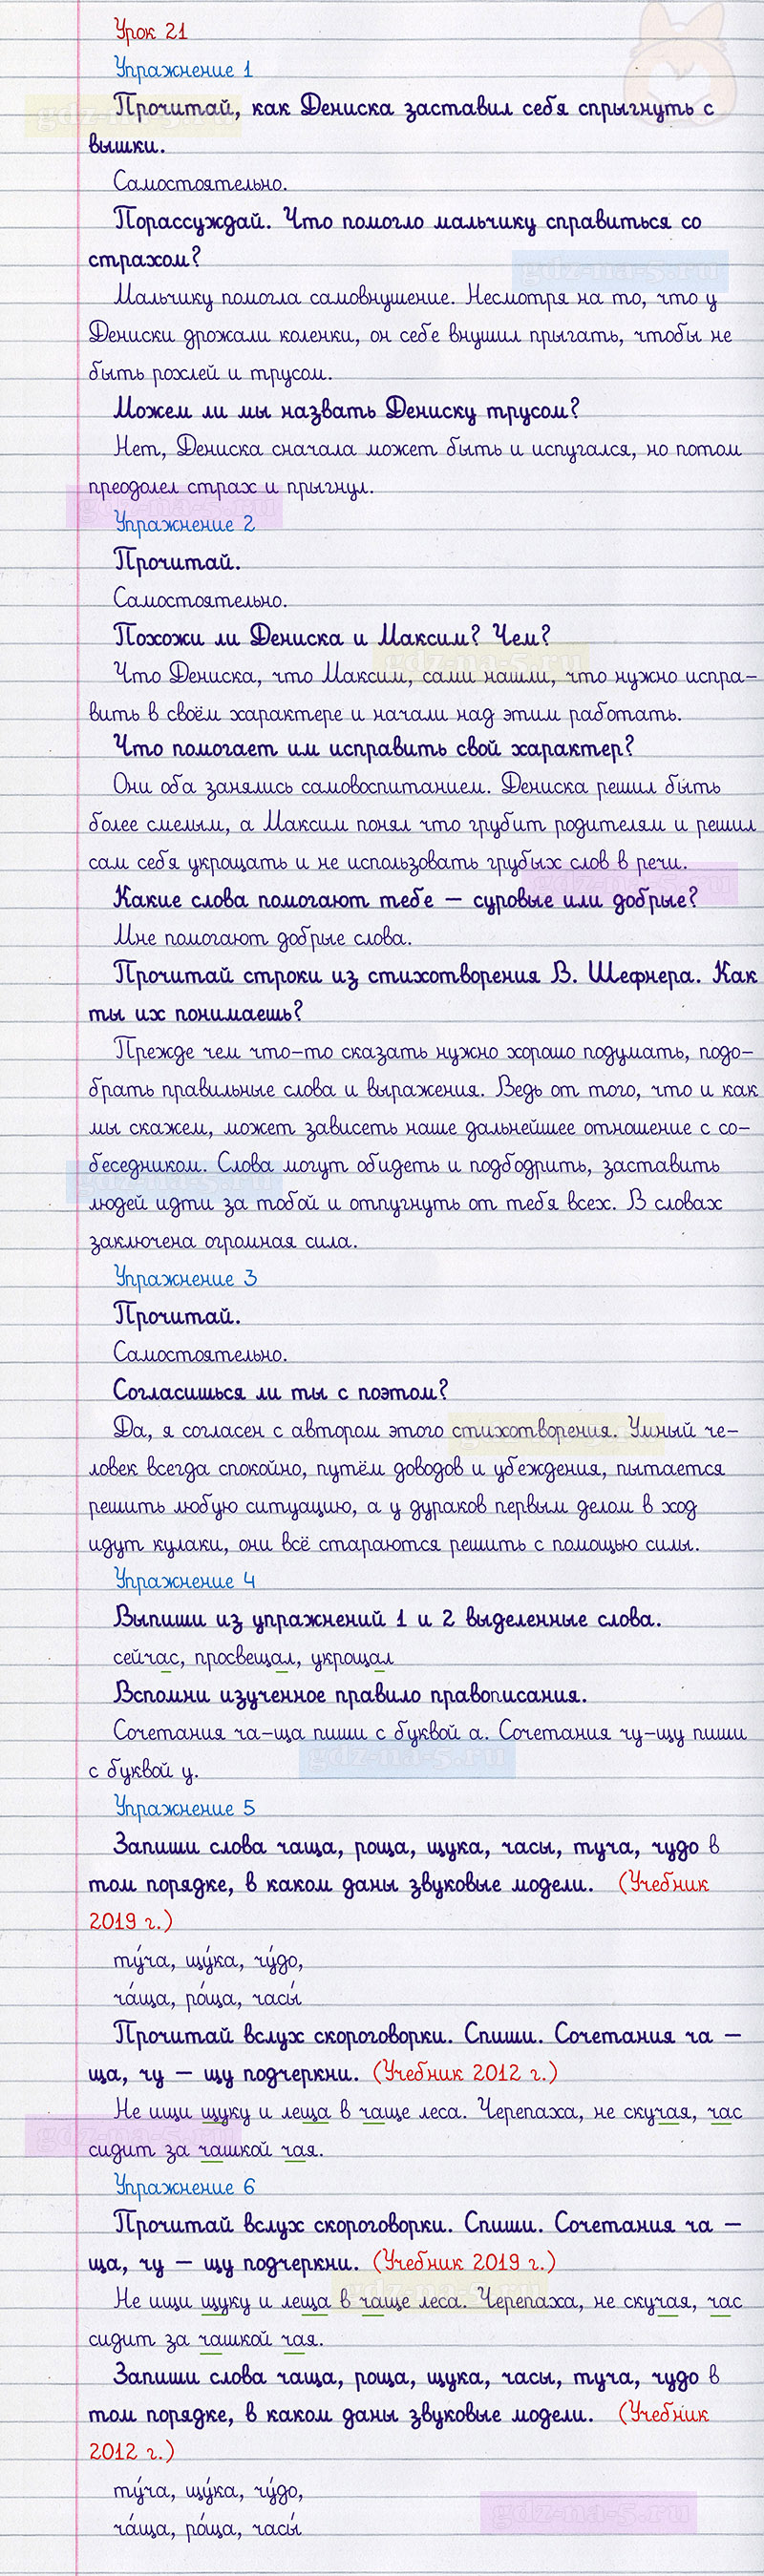 Урок 21
Упражнение 1
Прочитай, как Дениска заставил себя спрыгнуть с
вышки.
Самостоятельно.
Порассуждай. Что помогло мальчику справиться со
страхом?
Мальчику помогла самовнушение. Несмотря на то, что у
Дениски дрожали коленки, он себе внушил прыгать, чтобы не
быть рохлей и трусом.
Можем ли мы назвать Дениску трусом?
Нет, Дениска сначала может быть и испугался, но потом
преодолел страх и прыгнул.
Упражнение 2
Прочитай.
Самостоятельно.
Похожи ли Дениска и Максим? Чем?
Что Дениска, что Максим, сами нашли, что нужно испра-
вить в своём характере и начали над этим работать.
Что помогает им исправить свой характер?
Они оба занялись самовоспитанием. Дениска решил быть
более смелым, а Максим понял что грубит родителям и решил
сам себя укрощать и не использовать грубых слов в речи.
Какие слова помогают тебе – суровые или добрые?
Мне помогают добрые слова.
Прочитай строки из стихотворения В. Шефнера. Как
ты их понимаешь?
Прежде чем что-то сказать нужно хорошо подумать, подо-
брать правильные слова и выражения. Ведь от того, что и как
мы скажем, может зависеть наше дальнейшее отношение с со-
беседником. Слова могут обидеть и подбодрить, заставить
людей идти за тобой и отпугнуть от тебя всех. В словах
заключена огромная сила.
Упражнение 3
Прочитай.
Самостоятельно.
Согласишься ли ты с поэтом?
Да, я согласен с автором этого стихотворения. Умный че-
ловек всегда спокойно, путём доводов и убеждения, пытается
решить любую ситуацию, а у дураков первым делом в ход
идут кулаки, они всё стараются решить с помощью силы.
Упражнение 4
Выпиши из упражнений 1 и 2 выделенные слова.
сейчас, просвещал, укрощал
Вспомни изученное правило правописания.
Сочетания ча-ща пиши с буквой а. Сочетания чу-щу пиши
с буквой у.
Упражнение 5
Запиши слова чаща, роща, щука, часы, туча, чудо в
том порядке, в каком даны звуковые модели. (Учебник
2019 г.)
ту́ча, щу́ка, чу́до,
ча́ща, ро́ща, часы́
Прочитай вслух скороговорки. Спиши. Сочетания ча –
ща, чу – щу подчеркни. (Учебник 2012 г.)
Не ищи щуку и леща в чаще леса. Черепаха, не скучая, час
сидит за чашкой чая.
Упражнение 6
Прочитай вслух скороговорки. Спиши. Сочетания ча –
ща, чу – щу подчеркни. (Учебник 2019 г.)
Не ищи щуку и леща в чаще леса. Черепаха, не скучая, час
сидит за чашкой чая.
Запиши слова чаща, роща, щука, часы, туча, чудо в
том порядке, в каком даны звуковые модели. (Учебник
2012 г.)
ту́ча, щу́ка, чу́до,
ча́ща, ро́ща, часы́
gdz-na-5.ru